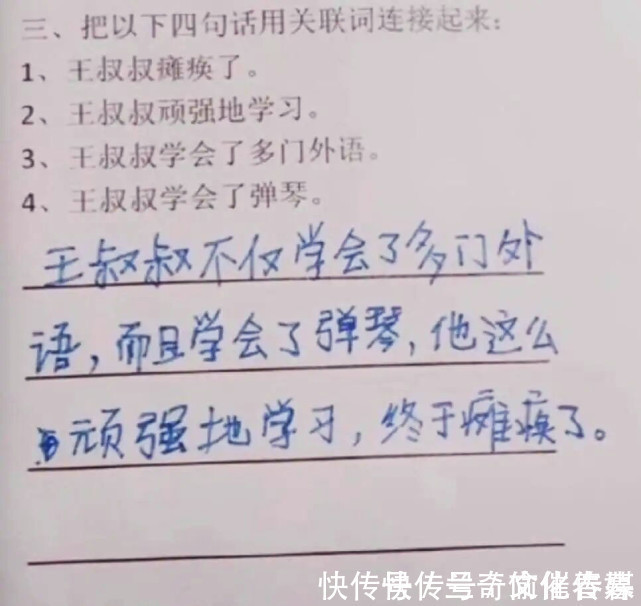 三、把以下四句话用关联词连接起来:
1、王叔叔瘫痪了。
2、王叔叔顽强地学习。
3、王叔叔学会了多门外语。
4、王叔叔学会了弹琴。
王叔叔不仅学会了多门外
语，而且学会了弹琴，他这么
顽强地学习，终于瘫痪了。
快传号